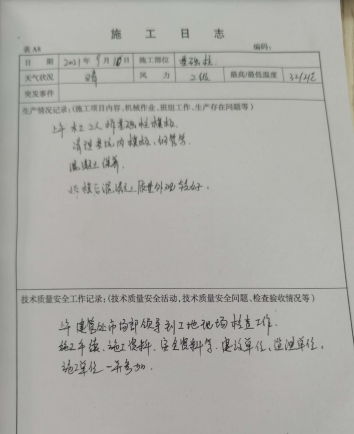 施工日志
表A8 编码:
日期 2021年9月10日 施工部位 基础柱
天气状况 晴 风力 二级 最高/最低温度 32/21℃
突发事件
生产情况记录:(施工项目内容、机械作业、班组工作、生产存在问题等)
上午 木工2人拆基础柱模板
清理基坑内模板、钢管等
混凝土保养
拆模后混凝土质量外观较好.
技术质量安全工作记录:(技术质量安全活动,技术质量安全问题、检查验收情况等)
上午 建管处市场部领导到工地现场检查工作.
施工手续、施工资料、安全资料等.建设单位,监理单位,
施工单位一并参加.